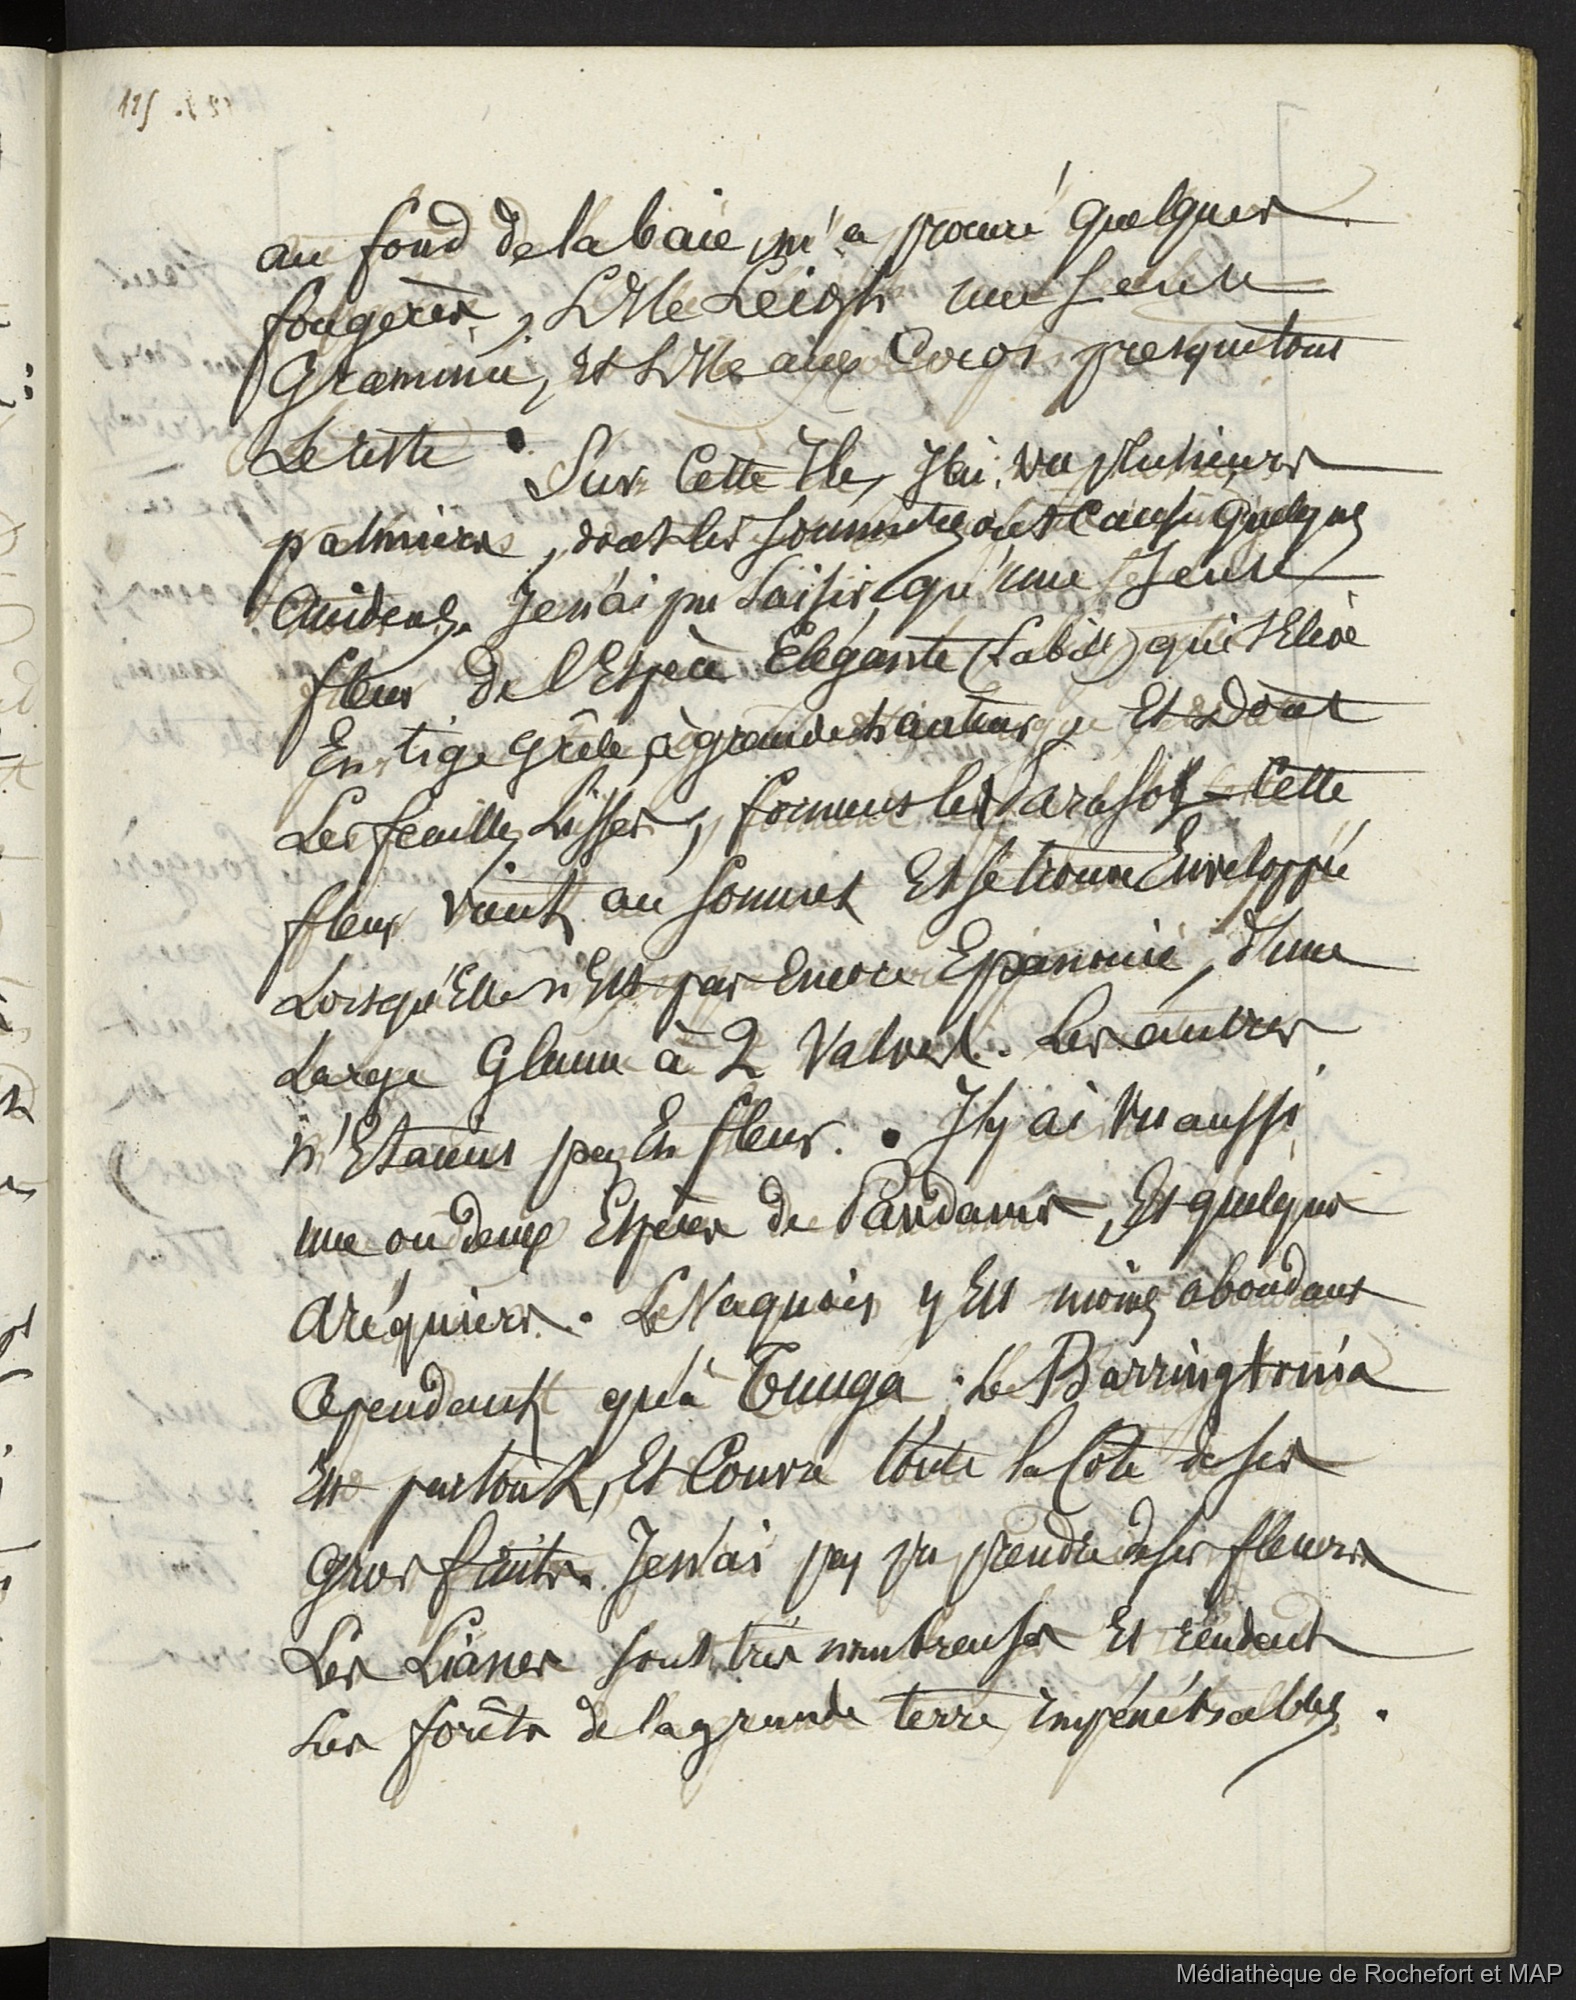 125
au fond de la baie, m'a procuré quelques
fougères, L'Ile Leigh une seule
Graminée, et L'Ile aux Cocos presque tous
Le reste. Sur Cette Ile, J'ai vu plusieurs
palmiers, dont les sommités ont causé quelques
accidents. Je n'ai pu saisir qu'une seule
fleur de l'Espèce Elégante (Labill) qui s'élève
En tige grêle, à grande hauteur Et Dont
Les feuilles Lisses, forment les Parasols - Cette
fleur vient au sommet Et se trouve Enveloppée
Lorsqu'Elle n'Est pas Encore Epanouie, d'une
Large Glume à 2 Valves. Les autres
n'Etaient pas En fleur. J'y ai vu aussi
une ou deux Espèces de Pandanus, Et quelques
Aréquiers. Le Vaquois y Est moins abondant
Cependant qu'à Tonga. Le Barringtonia
Est partout, Et Couvre toute la Côte de ses
gros fruits. Je n'ai pas pu prendre de ses fleurs
Les Lianes sont très nombreuses Et rendent
Les forêts de la grande terre impénétrables.
Médiathèque de Rochefort et MAP